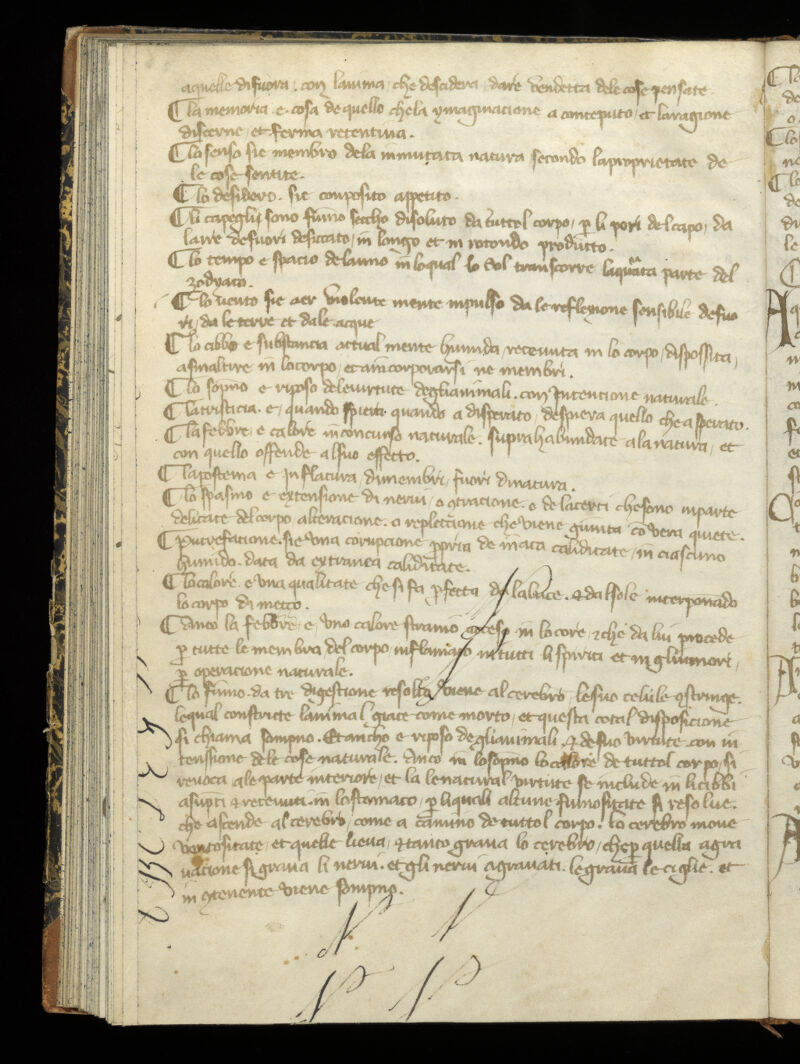 aquelle difuora . con lanima . che descidera . dare vendetta dele cose pensate
¶ la memoria . e . cosa de quello chela ymaginacione a conceputo . et laragione
discerne . et ferma retentiua .
¶ lo senso sie membro dela inmutata natura secondo laproprietate de
le cose sentite .
¶ lo desidero . sie composito appetito .
¶ li capeglij sono fumo seccho disoluto da tuttol corpo / p li pori del capo / da
laire defuori desiccato / in longo et in rotondo produtto .
¶ lo tempo e spacio delanno in loqual lo sol transcorre liquarta parte del
zodyaco .
¶ lo uento sie aer violente mente inpulso da le reflexione sensibile defuo
ri / da le terre et dale acque
¶ lo cibbo e substancia actual mente humida / receuuta in lo corpo / dispossita /
asmaltire in locorpo / et aincorporarsi ne membri .
¶ lo sopno e riposo deleuirtute deglianimali . con intencione naturale .
¶ latristicia . e / quando spiera . quando a disperato / despuera quello che a sperato .
¶ la febbre / e calore inconcurso naturale . suprahabundate a la natura / et
con quello offende alsuo effetto .
¶ lapostema e inflatura / dimembri / fuori dinatura .
¶ lo spasmo e extensione di nerui / o otracione . o de lacerti chesono inparte
delicate del corpo alteracione . o repletione che viene giunta co vera quiete .
¶ putrefatione . sie vna corupcione ppria de inata caliditate / in ciascuno
humido . data da extranea caliditate .
¶ localore . e vna qualitate che si fa pfetta da laluce . & dalsole interponado
lo corpo di mezo .
¶ Anco la febbre / e / vno calore stranio acceso in lo core / & che da lui procede
p tutte le membra del corpo / inflamato in tutti li spiriti et in gliumori /
p operacione naturale .
¶ lo fumo . da tre digestione resoluto viene al cerebro / lesue celule 9stringe .
lequal constricte lanimal giace come morto / et questa cotal disposicione
si chiama sompno . Et ancho e riposo deglianimali . & desue virtute . con in
tenssione dele cose naturale . Anco in losopno localore de tuttol corpo / si
reuoca ale parte interiore / et la lenatural virtute se include in licibbi
asupti & receuuti . in lostomaco / p liquali alcune fumositate si resolue .
che ascende al cerebro / come a camino de tuttol corpo . lo cerebro moue
ventositate / et quelle lieua / & tanto graua lo cerebro / che p quella agra
uacione si graua li nerui . et gli nerui agrauati . le graua le ciglie . et
in 9tenente viene sompno .